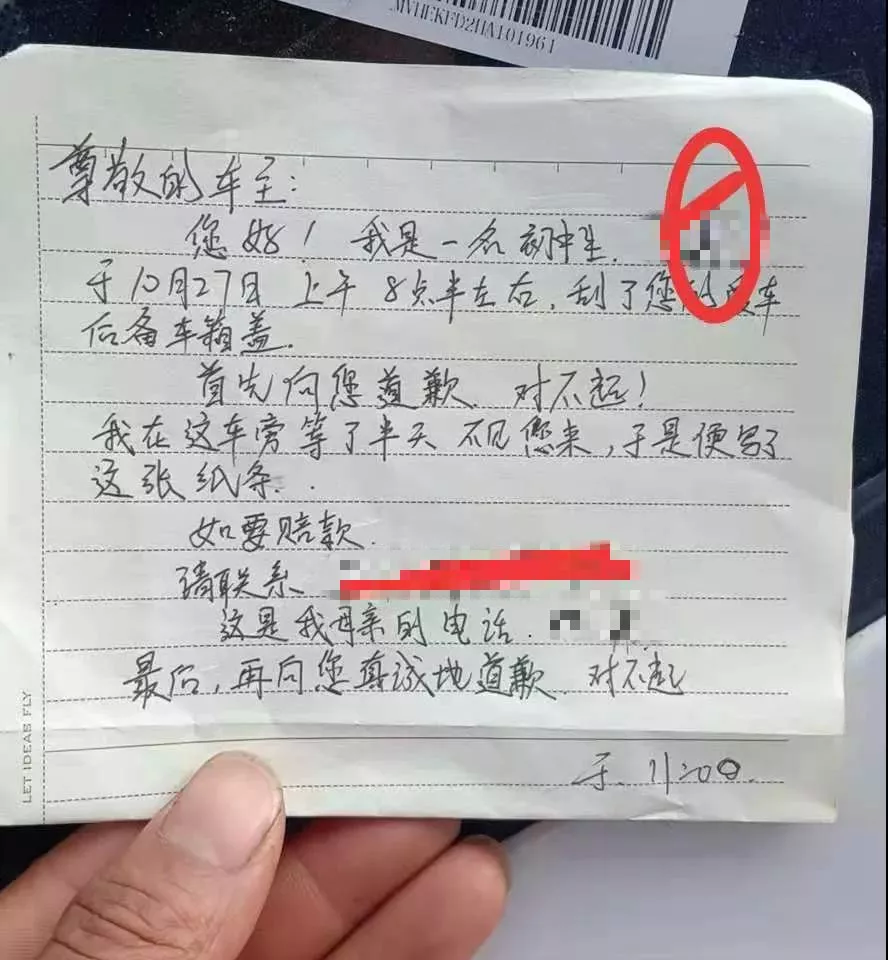 MVHEKFD2HA101961
尊敬的车主:
您好! 我是一名初中生.
于10月27日 上午 8点半左右,刮了您的爱车
后备车箱盖.
首先向您道歉. 对不起!
我在这车旁等了半天 不见您来,于是便写了
这张纸条..
如要赔款.
请联系
这是我母亲的电话.
最后,再向您真诚地道歉. 对不起
于. 11:00.
LET IDEAS FLY